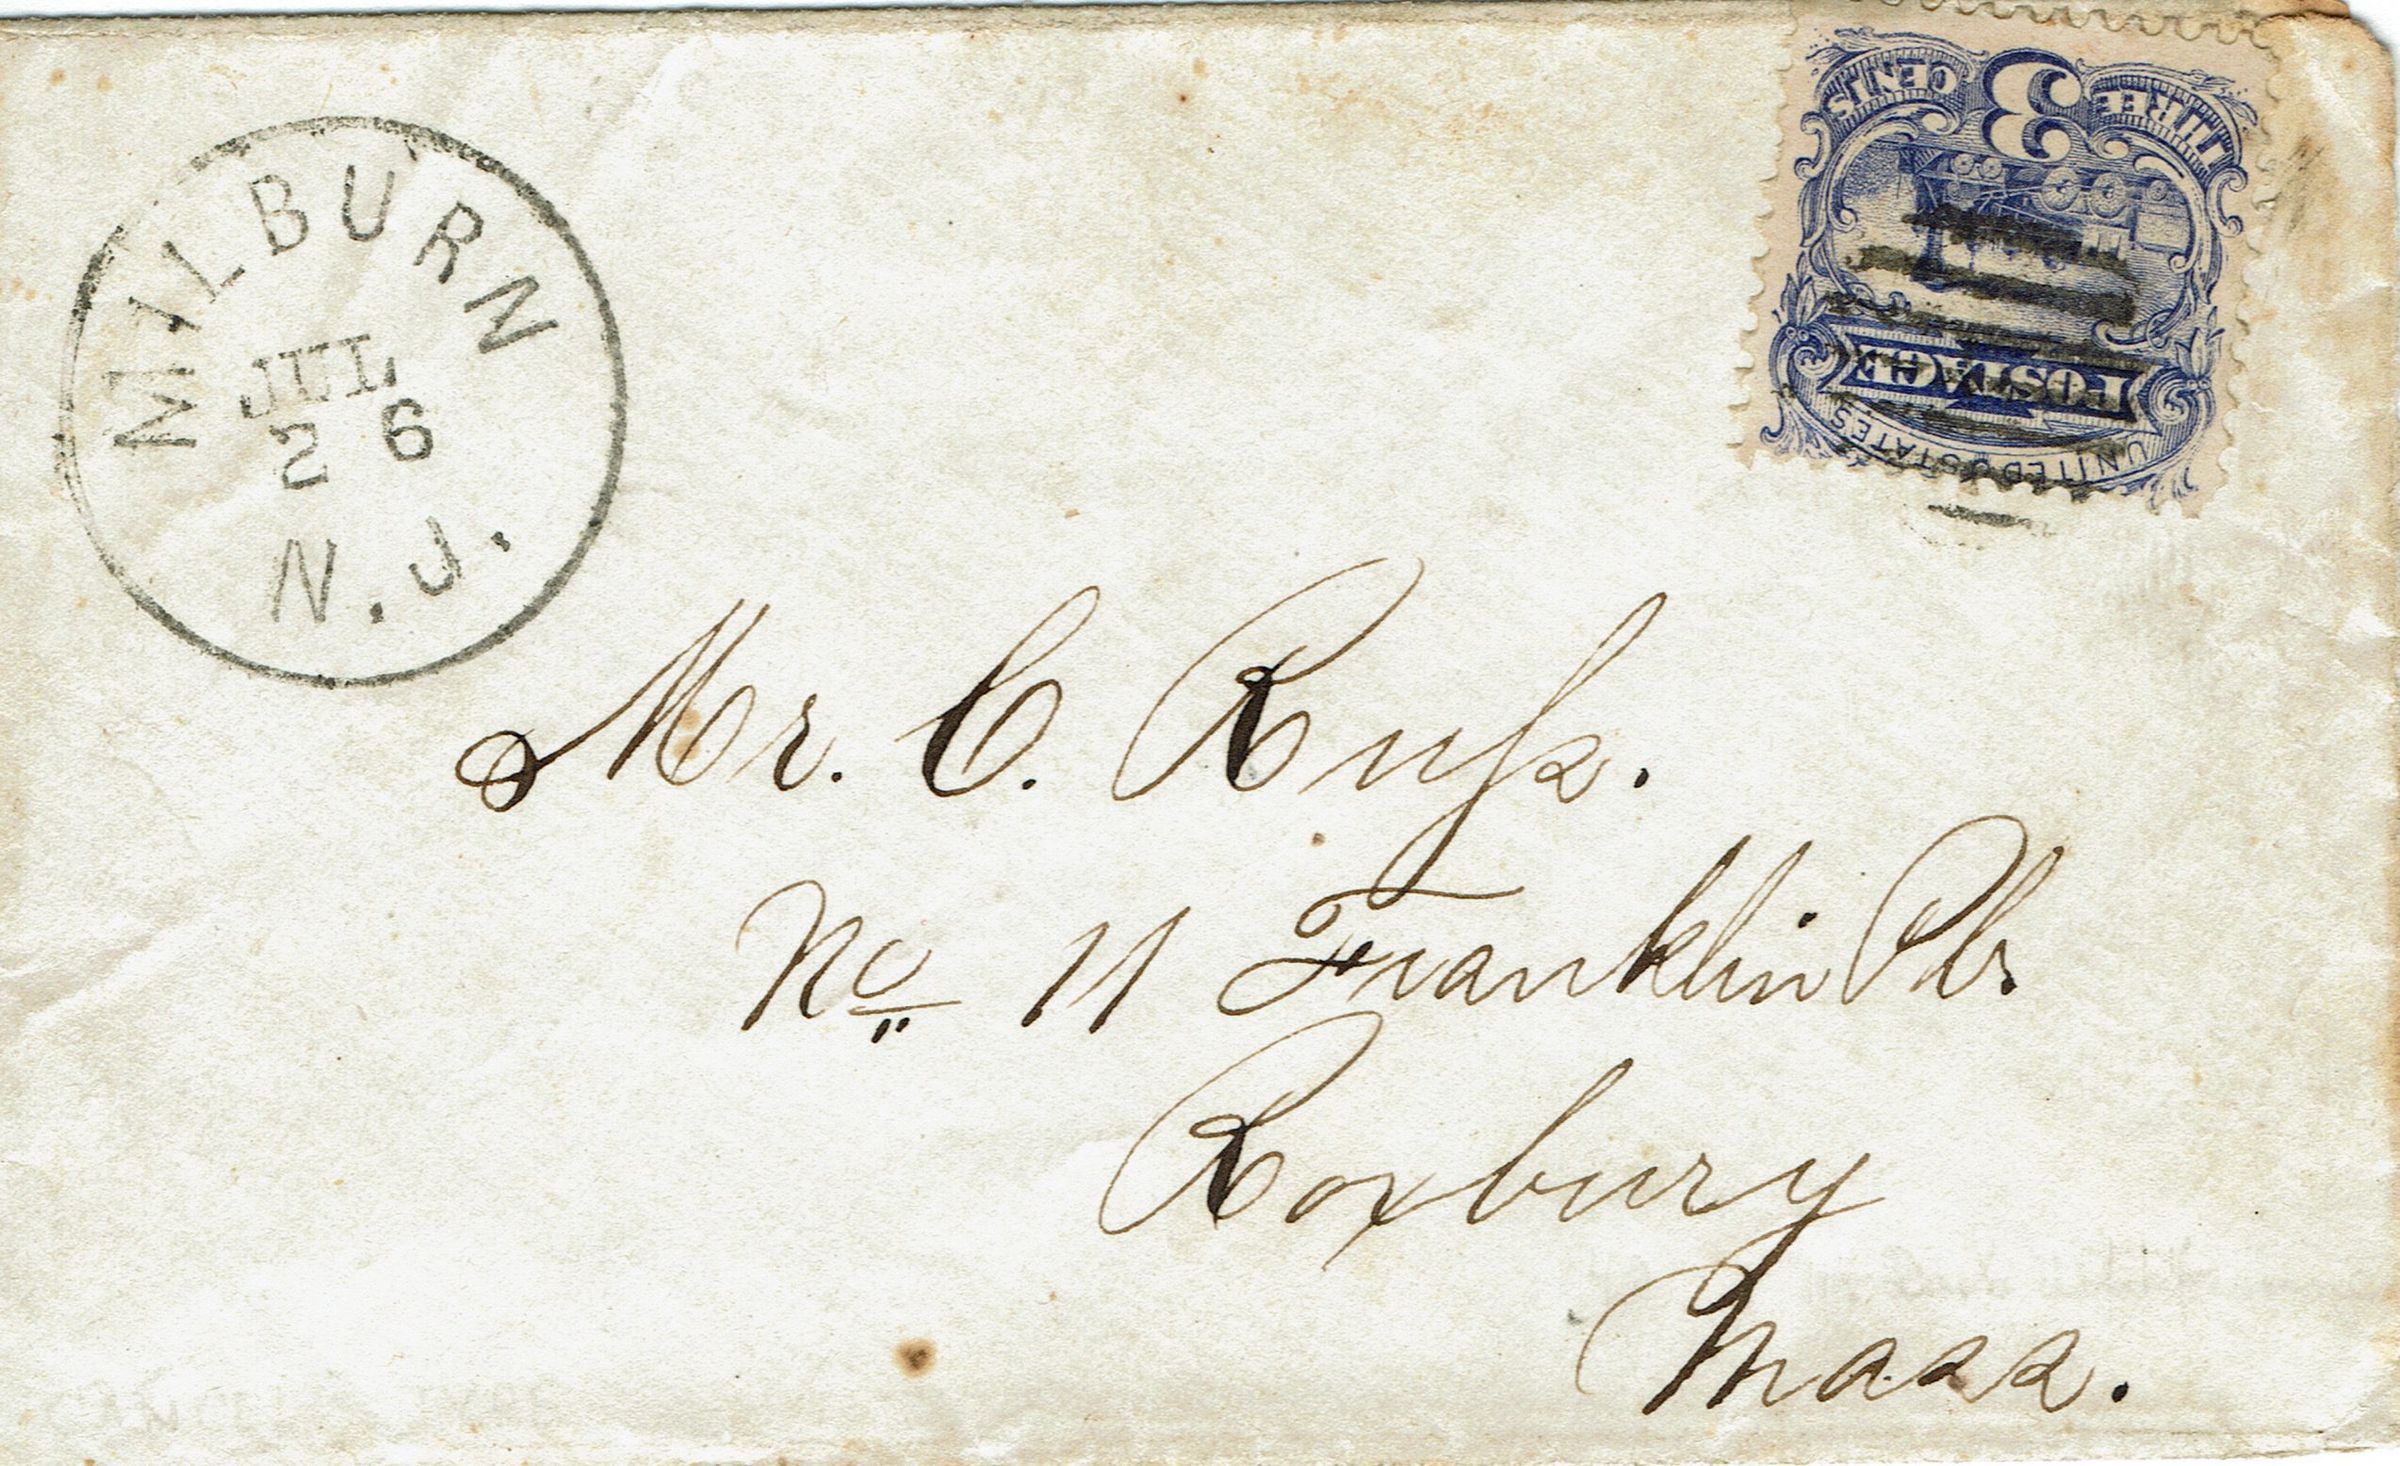 MILBURN
JUL
26
N.J.
THREE 3 CENTS
POSTAGE
UNITED STATES
Mr. C. Ruſs.
No 11 Franklin Pl.
Roxbury
Mass.